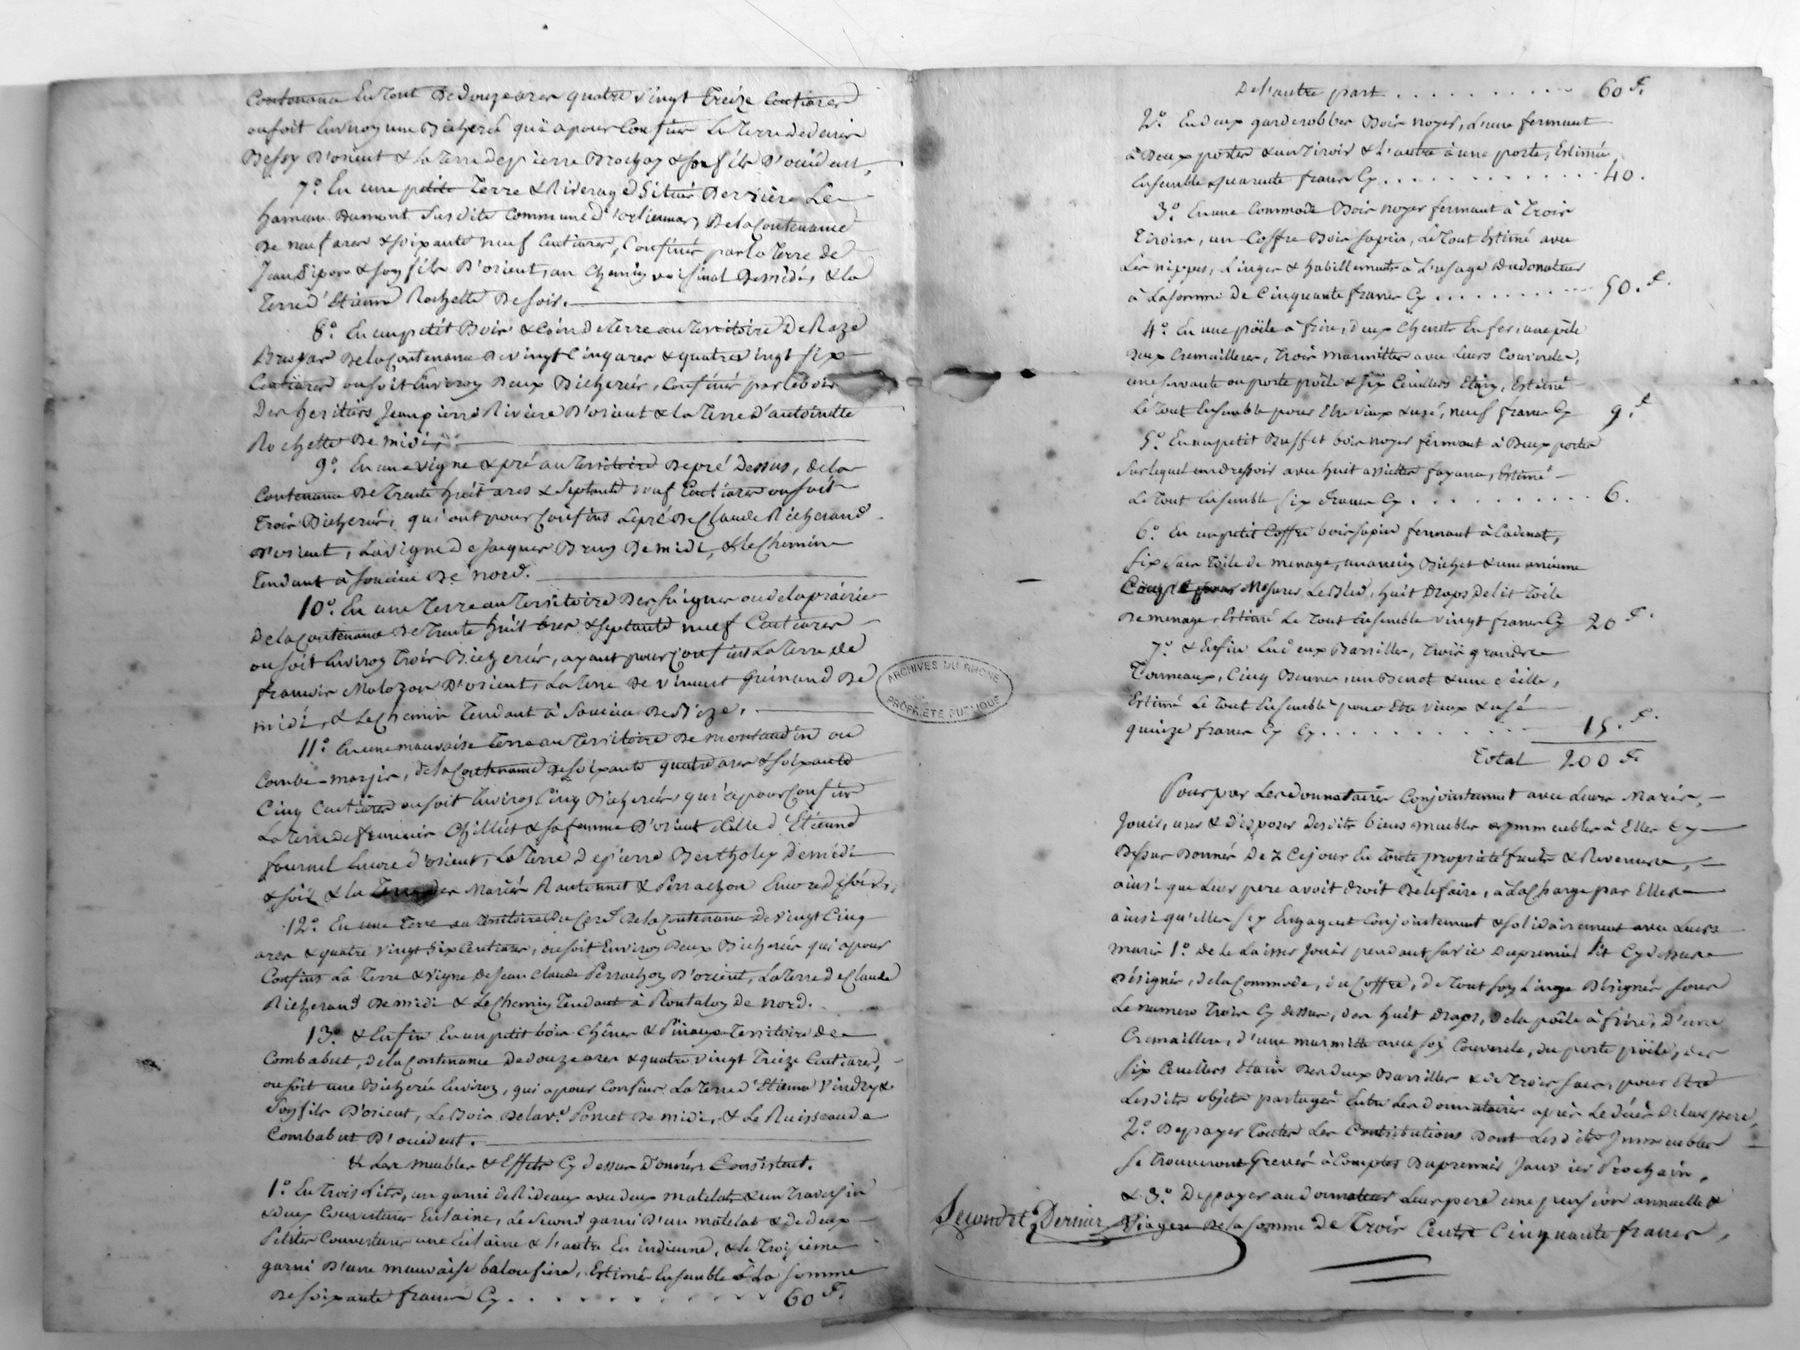 Contenance En Tout De douze ares quatre vingt Treize Centiares
ou soit Environ une Bicherée qui a pour Confins La Terre de
D'orient & la Terre de pierre Brochay & son fils D'occident,
7.° En une petite Terre & Riverage Située Derrière Le
hameau Dumont Susdite Commune d'orlienas, De la Contenance
De neuf ares & soixante neuf Centiares, Confinée par la Terre de
Jean & son fils D'orient, au Chemin voisinal De midi, & la
Terre d'Etienne Rochette De soir.
8.° En un petit Bois & Coin de Terre au Territoire De Raze
De la Contenance De vingt Cinq ares & quatre vingt six
Centiares ou soit Environ Deux Bicherées, Confinés par le bois
Des heritiers Jean pierre Rivière D'orient & la Terre d'antoinette
Rochette De midi,
9.° En une vigne & pré au Territoire De pré Dessus, de la
Contenance De Trente huit ares & Septante neuf Centiares ou soit
Trois Bicherées, qui ont pour Confins Le pré De Claude Richerand
D'orient, La vigne de Jacques Brun De midi, & le Chemin
Tendant à Soucieu De nord.
10.° En une Terre au Territoire Des ou de la prairie
De la Contenance De Trente huit ares & septante neuf Centiares
ou soit Environ Trois Bicherées, ayant pour Confins La Terre de
francois Molozon D'orient, La Terre De vincent Guinand De
midi, & Le Chemin Tendant à Soucieu De Bize.
11.° En une mauvaise Terre au Territoire De montaudin ou
Combe-marjin, de la Contenance De soixante quatre ares & soixante
Cinq Centiares ou soit Environ Cinq Bicherées qui a pour Confins
La Terre de Chilliet & sa femme D'orient Celle d'Etienne
fournel Encore d'orient, La Terre de pierre Bertholey De midi
& soir & la Mariés Rautonnet & Perrachon Encore de soir,
12.° En une Terre au Territoire Du De la Contenance De vingt Cinq
ares & quatre vingt six Centiares, ou soit Environ Deux Bicherées qui a pour
Confins La Terre & vigne de Jean Claude Perrachon D'orient, La Terre de Claude
Richerand De midi & Le Chemin Tendant à Rontalon de nord.
13.° & Enfin En un petit bois Chênes & Pinaux Territoire de
Combabut, de la Contenance De douze ares & quatre vingt Treize Centiares,
ou soit une Bicherée Environ, qui a pour Confins La Terre d'Etienne Vindry &
Son fils D'orient, Le Bois De la v.e Poncet De midi, & Le Ruisseau de
Combabut D'occident.
& Les meubles & Effets Cy dessus Donnés Consistent.
1.° En Trois Lits, un garni de Rideaux avec deux matelats & un Traversin
& deux Couvertures En laine, Le Second garni D'un matelat & de deux
Petites Couvertures une En laine & l'autre En indienne, & le Troisième
garni D'une mauvaise baloufière, Estimés Ensemble à La Somme
De soixante francs Cy . . . . . . . . . 60 F.
De l'autre part . . . . . . . . . . 60 F.
2.° En deux garderobbes Bois noyer, L'une fermant
à Deux portes & un Tiroir & L'autre à une porte, Estimées
Ensemble quarante francs Cy . . . . . . . . . . . 40.
3.° En une Commode Bois noyer fermant à Trois
Tiroirs, un Coffre Bois Sapin, Le Tout Estimé avec
Les nippes, Linges & habillements à L'usage Du donateur
à La somme de Cinquante francs Cy . . . . . . . . . 50. F.
4.° En une pöele à frire, deux Chenets En fer, une pêle
Deux Cremailleres, Trois marmittes avec Leurs Couvercles,
une Servante ou porte poële & six Cuillers Etain, Estimés
Le Tout Ensemble pour Etre vieux & usé, neuf francs Cy 9. F
5.° En un petit Buffet bois noyer fermant à Deux portes
Sur lequel un dressoir avec huit assiettes fayance, Estimé
Le Tout Ensemble six francs Cy . . . . . . . . . . 6.
6.° En un petit Coffre bois sapin fermant à Cadenat,
Six Sacs Toile de menage, un ancien Bichet & une ancienne
Coupe pour Mesurer Le Bled, huit Draps De lit Toile
De menage Estimé Le Tout Ensemble vingt francs Cy 20 F.
7.° & Enfin En Deux Barrilles, Trois grandes
Tonneaux, Cinq Bennes, un Benot & une
Estimé Le Tout Ensemble pour Etre vieux & usé
quinze francs Cy Cy . . . . . . . . . . . 15. F.
Total 200 F.
Pour par Les donnataires Conjointement avec Leurs Maris,
Jouir, user & disposer desdits biens meubles & immeubles à Elles Cy
Dessus Donnés De Ce jour En Toute propriété fruits & Revenus,
ainsi que Leur pere avoit droit De le faire, à La Charge par Elles
ainsi qu'elles s'y Engagent Conjointement & solidairement avec Leurs
maris 1.° De Le Laisser Jouir pendant sa vie Du premier Lit Cy dessus
Désigné, de la Commode, du Coffre, de Tout son Linge Désignés Sous
Le numero Trois Cy dessus, des huit Draps, de la pöele à frire, d'une
Cremaillere, d'une marmitte avec son Couvercle, du porte pöele, des
Six Cuillers Etain Des deux Barrilles & de Trois Sacs, pour Etre
Lesdits objets partagés Entre Les donnataires après Le décès De Leur pere,
2.° De payer Toutes Les Contributions Dont Lesdits Immeubles
Se Trouveront Grevés à Compter Du premier Janvier Prochain,
& 3.° De payer au donnateur Leur pere une pension annuelle &
Viagere De la somme de Trois Cents Cinquante francs,
Second et Dernier
ARCHIVES DU RHONE
PROPRIÉTÉ PUBLIQUE